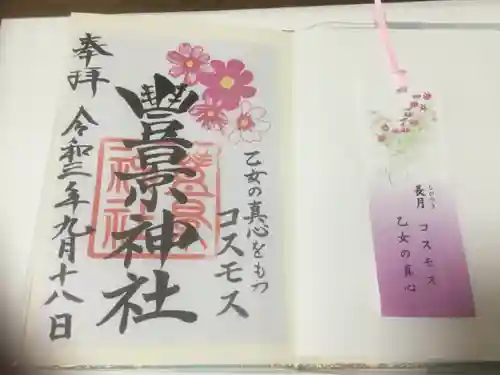 乙女の真心をもつ
コスモス
豊景神社
奉拝
令和三年九月十八日
長月
コスモス
乙女の真心